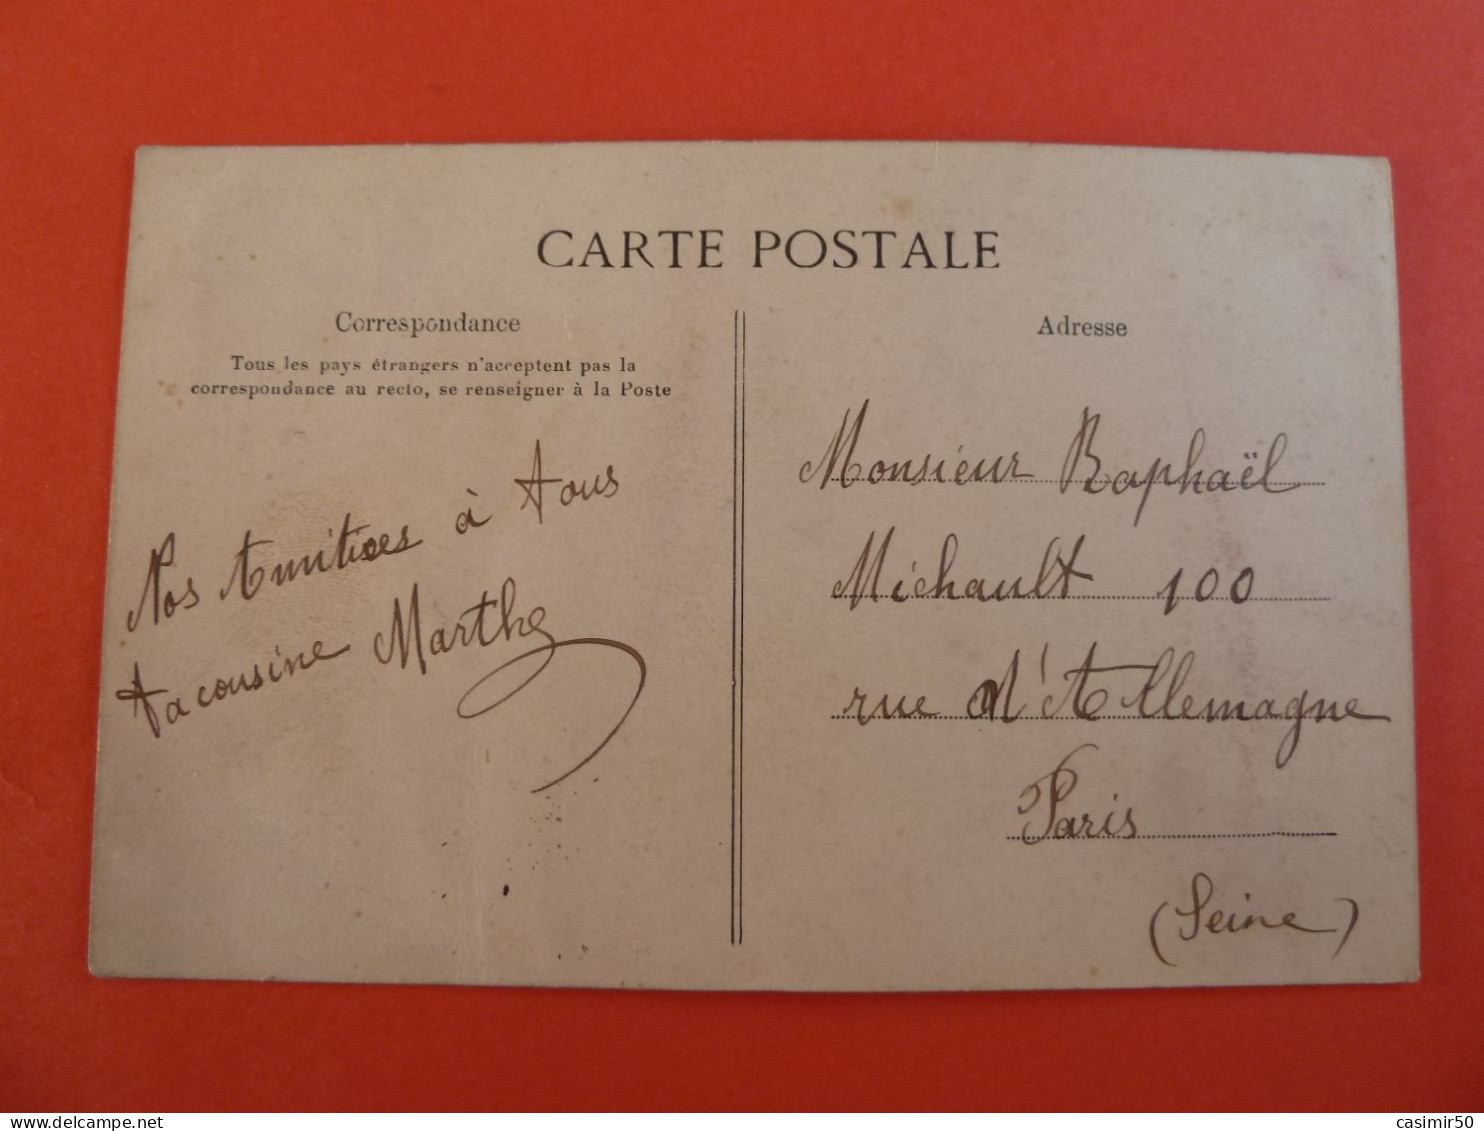 CARTE POSTALE
Correspondance
Tous les pays étrangers n'acceptent pas la
correspondance au recto, se renseigner à la Poste
Nos Amitiées à tous
ta cousine Marthe
Adresse
Monsieur Raphaël
Michault 100
rue d'Allemagne
Paris
(Seine)
casimir50